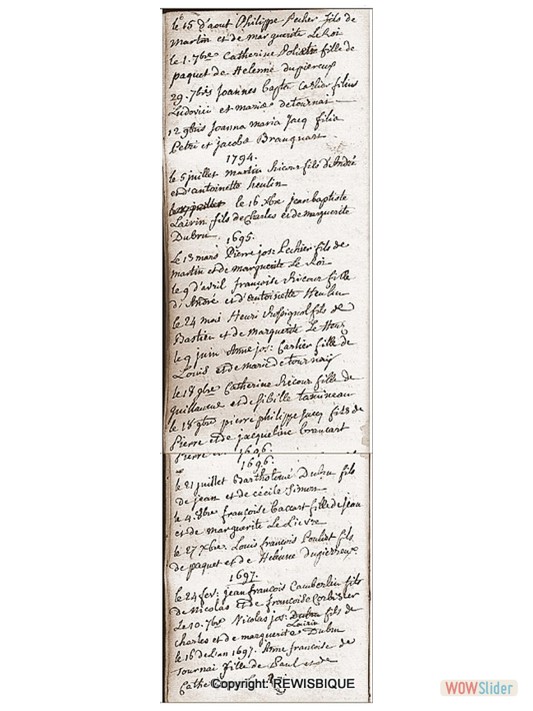 le 15 d'aout Philippe Pecher fils de
martin et de marguerite Le Roi
le 1. 7bre Catherine fille de
paquet de Helenne dupiereux
29. 7bris Joannes bapta Carlier filius
Ludovici et mariæ detournai
12 9bris Joanna maria Jacq filia
Petri et jacoba Branquart
1794.
le 5 juillet martin Ricour fils d'André
et d'antoinette heulin
le 16 Xbre jean baptiste
Lairin fils de Charles et de marguerite
Dubru
1695.
Le 13 mars Pierre jos: Pechier fils de
martin et de marguerite Le Roi
le 9 d'avril françoise Ricour fille
d'André et d'antoinette Heulin
le 24 mai Henri Rossignol fils de
Bastien et de marguerite Le
le 9 juin Anne jos: Carlier fille de
Louis et de marie de tournay
le 18 9bre Catherine Ricour fille de
guillaume et de sibille tassineau
le 18 9bre pierre philippe jacq fils de
Pierre et de jacqueline brancart
Pierre 1696.
1696.
le 21 juillet Bartholomé Dubru fils
de jean et de cécile Simon
le 4. Xbre françoise Baccart fille de jean
et de marguerite Le Lievre
le 27 Xbre. Louis françois Pouliet fils
de paquet et de Helenne dugierheux
1697.
le 24 fev: jean françois Camberlin fils
de Nicolas et de françoise Corbisier
Le 10. 7bre Nicolas jos: Dubru fils de
Lairin
charles et de marguerite Dubru
le 16 de l'an 1697. Anne françoise de
tournai fille de Paul et de
Cathe
Copyright: REWISBIQUE
WOWSlider